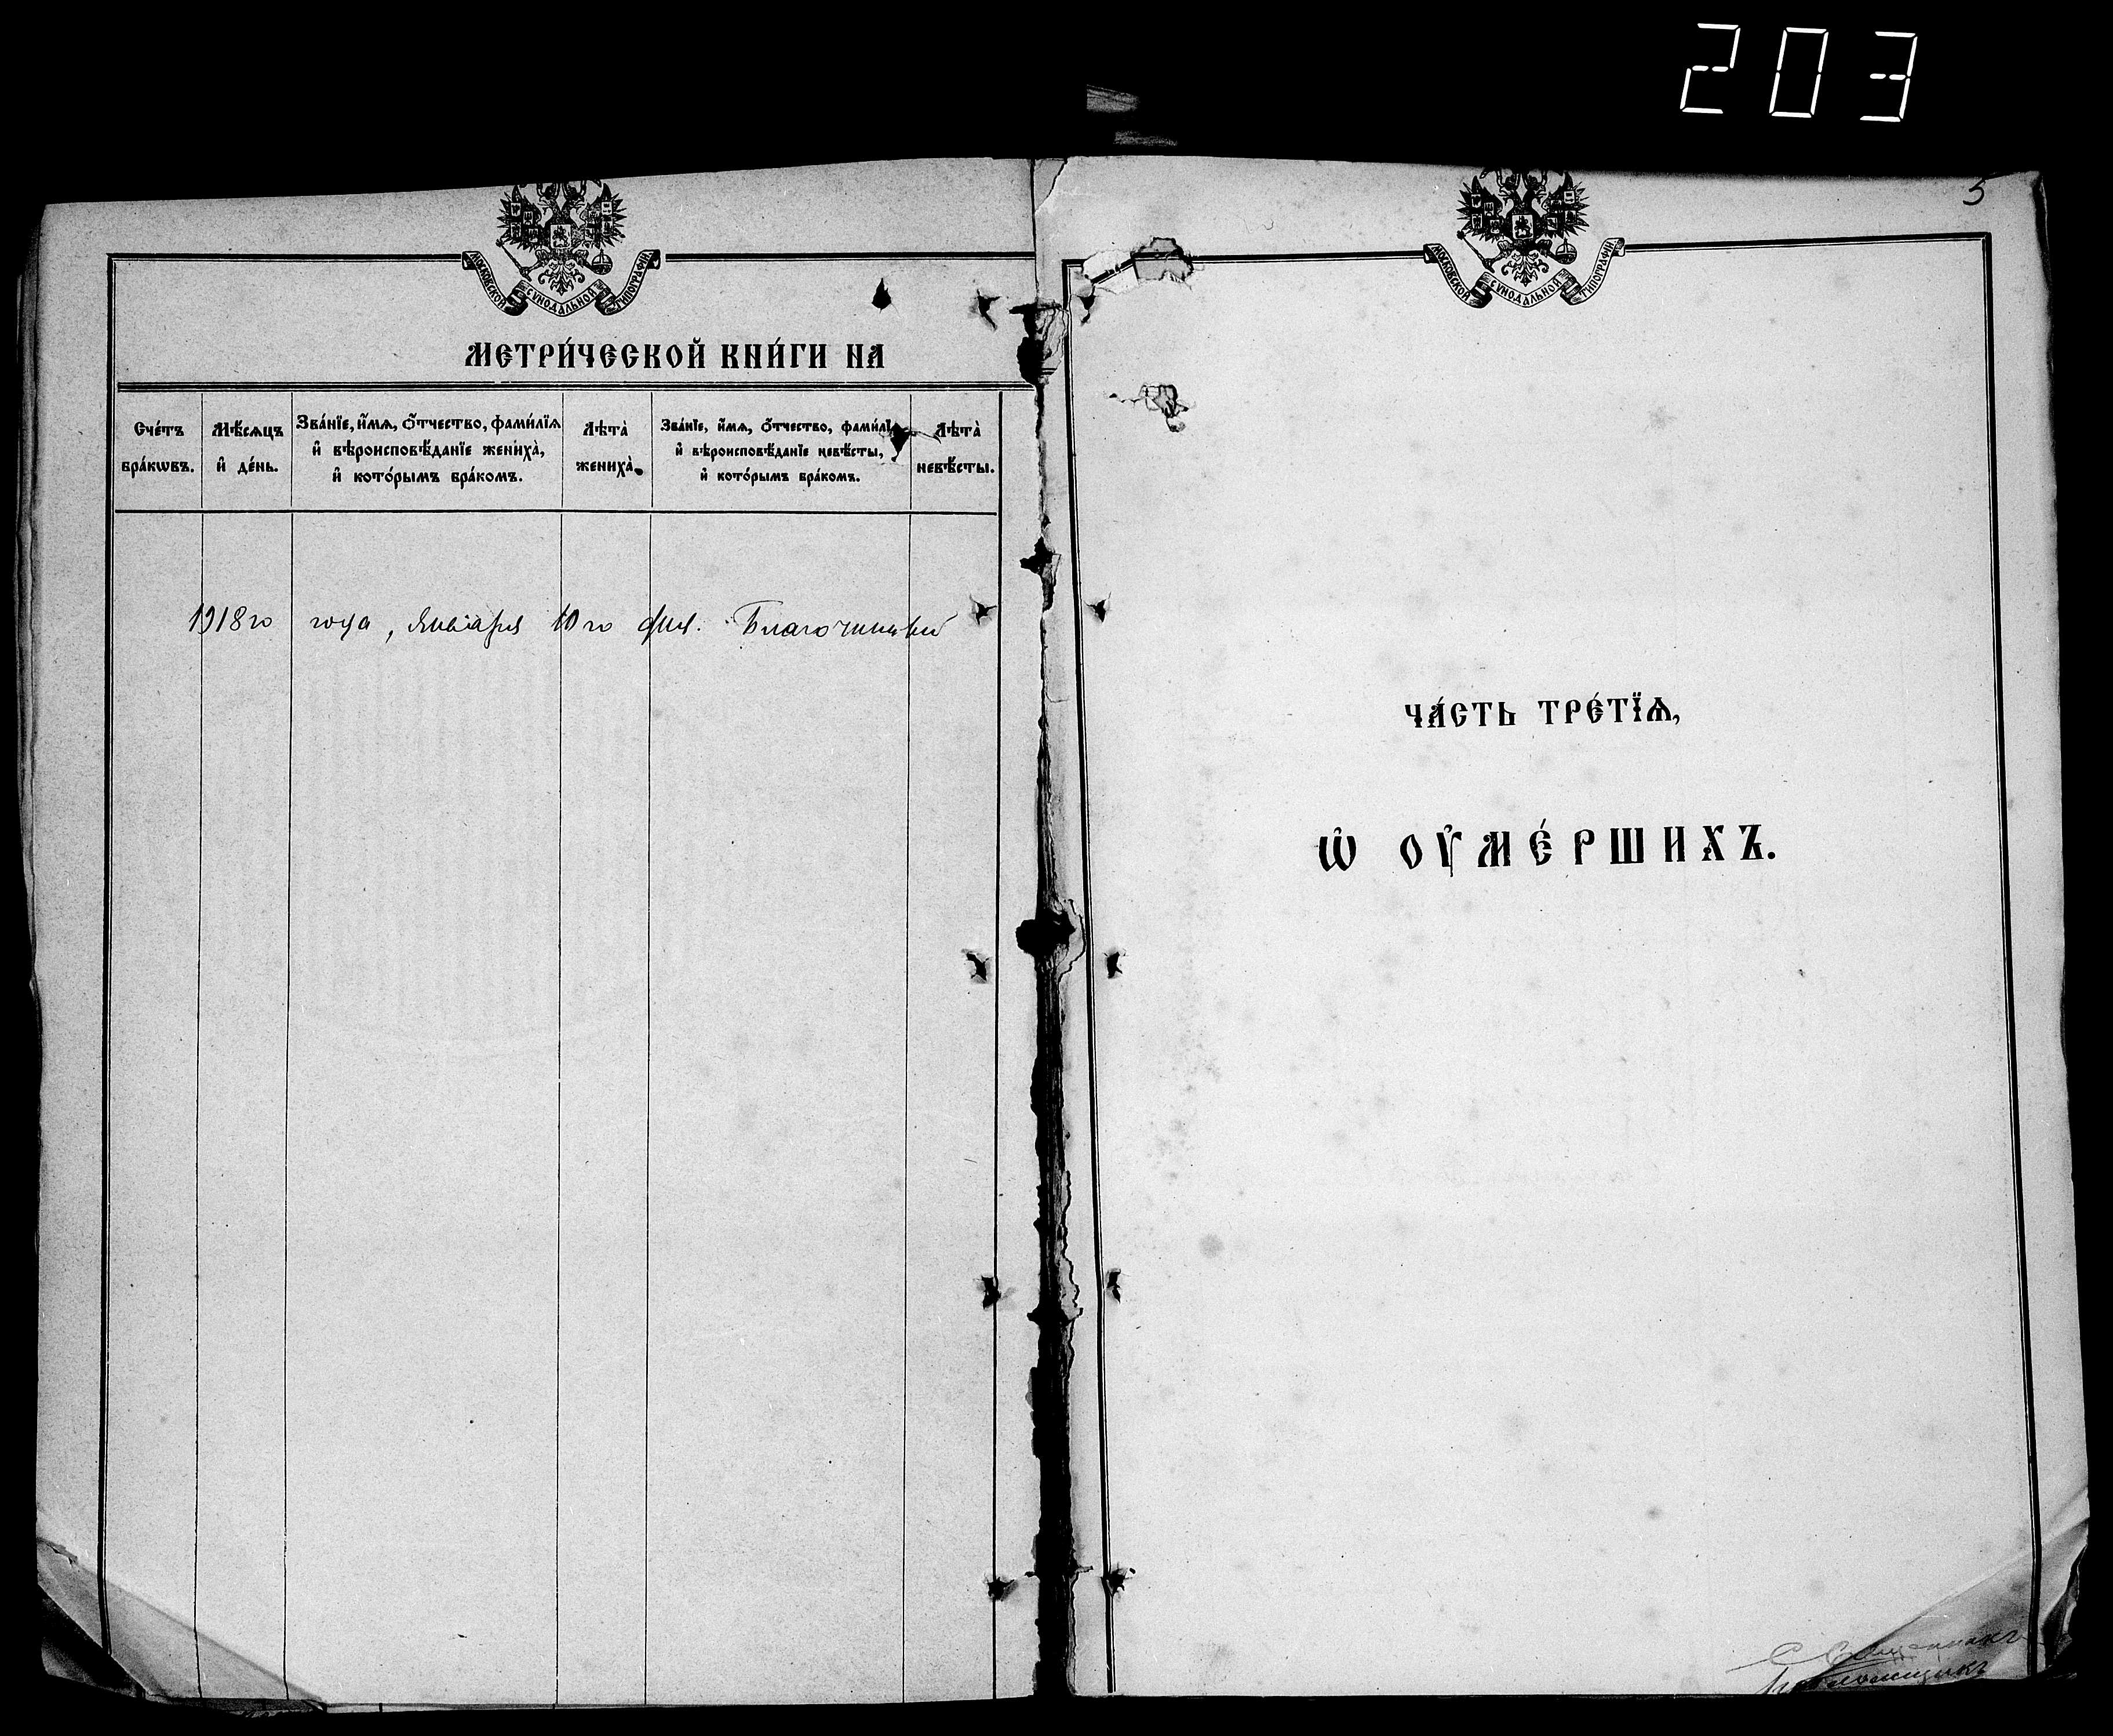 203
МОСКОВСКОЙ СѴНОДАЛЬНОЙ ТИПОГРАФІИ
МЕТРИ́ЧЕСКОЙ КНИ́ГИ НА
Сче́тъ бра́кѡвъ.
Мѣ́сѧцъ и҆ де́нь.
Зва́нїе, и҆́мѧ, ѻ҆́тчество, фами́лїѧ
и҆ вѣроисповѣ́данїе жениха̀,
и҆ кото́рымъ бра́комъ.
Лѣта̀ жениха̀.
Зва́нїе, и҆́мѧ, ѻ҆́тчество, фами́лїѧ
и҆ вѣроисповѣ́данїе невѣ́сты,
и҆ кото́рымъ бра́комъ.
Лѣта̀ невѣ́сты.
1918го года, Января 10го дня. Благочинный
5
МОСКОВСКОЙ СѴНОДАЛЬНОЙ ТИПОГРАФІИ
ЧА́СТЬ ТРЕ́ТЇѦ,
Ѡ҆ ОУ҆МЕ́РШИХЪ.